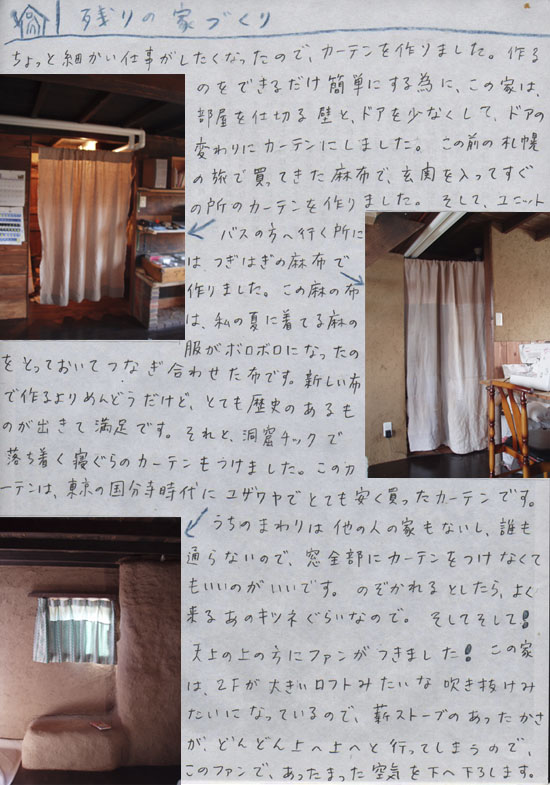 残りの家づくり
ちょっと細かい仕事がしたくなったので、カーテンを作りました。作る
のをできるだけ簡単にする為に、この家は、
部屋を仕切る壁と、ドアを少なくして、ドアの
変わりにカーテンにしました。この前の札幌
の旅で買ってきた麻布で、玄関を入ってすぐ
の所のカーテンを作りました。そして、ユニット
バスの方へ行く所に
はつぎはぎの麻布で
作りました。この麻の布
は、私の夏に着てる麻の
服がボロボロになったの
をとっておいてつなぎ合わせた布です。新しい布
で作るよりめんどうだけど、とても歴史のあるも
のが出きて満足です。それと、洞窟チックで
落ち着く寝ぐらのカーテンもつけました。このカ
ーテンは、東京の国分寺時代にユザワヤでとても安く買ったカーテンです。
うちのまわりは他の人の家もないし、誰も
通らないので、窓全部にカーテンをつけなくて
もいいのがいいです。のぞかれるとしたら、よく
来るあのキツネぐらいなので。そしてそして!
天上の上の方にファンがつきました!この家
は、2Fが大きいロフトみたいな吹き抜けみ
たいになっているので、薪ストーブのあったかさ
が、どんどん上へ上へと行ってしまうので、
このファンで、あったまった空気を下へ下ろします。